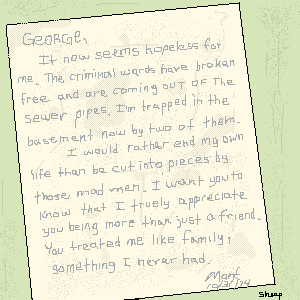 GEORGE,
It now seems hopeless for
me. The criminal wards have broken
free and are coming out of the
sewer pipes. I'm trapped in the
basement now by two of them.
I would rather end my own
life than be cut into pieces by
those mad men. I want you to
know that I truely appreciate
you being more than just a friend.
You treated me like family,
something I never had.
10/31/74